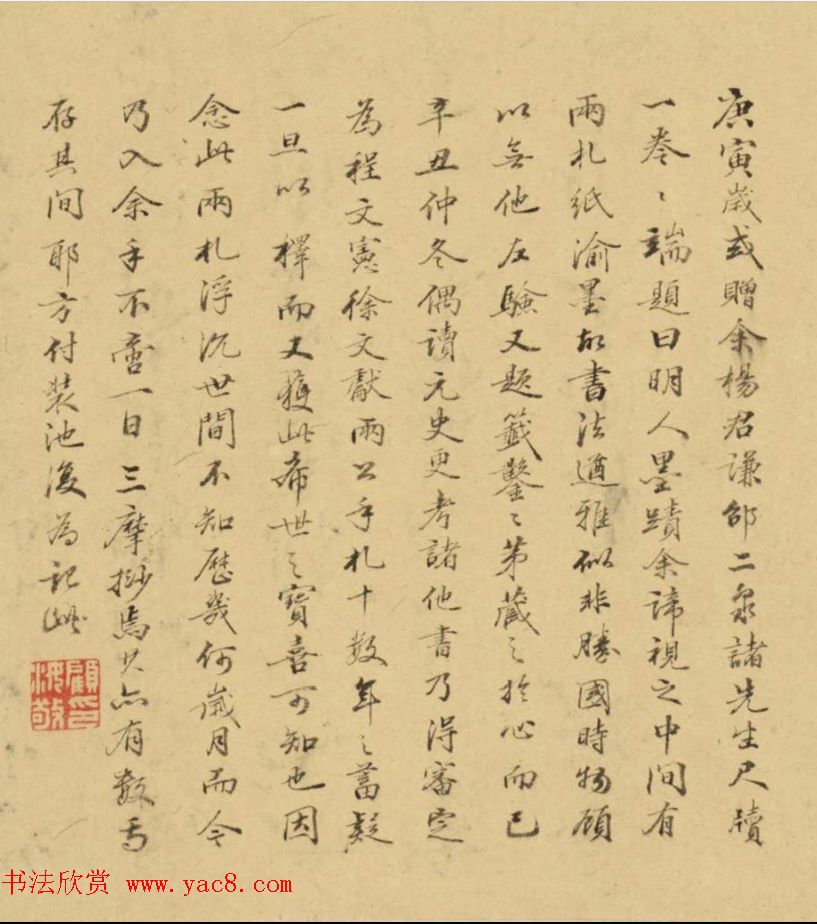 庚寅歲或贈余楊君謙邵二泉諸先生尺牘
一卷〻端題曰明人墨蹟余諦視之中間有
兩札紙渝墨故書法遒雅似非勝國時物顧
以無他左驗又題籤鑿〻第藏之於心而已
辛丑仲冬偶讀元史更考諸他書乃得審定
為程文憲徐文獻兩公手札十數年之蓄疑
一旦以釋而又獲此希世之寶喜可知也因
念此兩札浮沉世間不知歷幾何歲月而今
乃入余手不啻一日三摩挲焉其亦有數焉
存其間耶方付裝池復為記此
顧印
書法欣赏 www.yac8.com